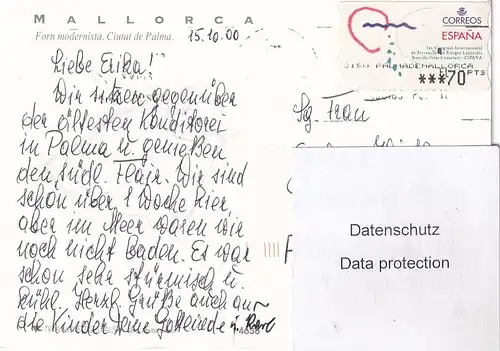 MALLORCA
Forn modernista. Ciutat de Palma.
15.10.00
CORREOS
ESPAÑA
***70 PTS
PALMADEMALLORCA
Liebe Erika!
Wir sitzen gegenüber
der ältesten Konditorei
in Palma u. genießen
den südl. Flair. Wir sind
schon über 1 Woche hier,
aber im Meer waren wir
noch nicht baden. Es war
schon sehr stürmisch u.
kühl. Herzl. Grüße auch an
die Kinder Deine
Sg. Frau
Datenschutz
Data protection